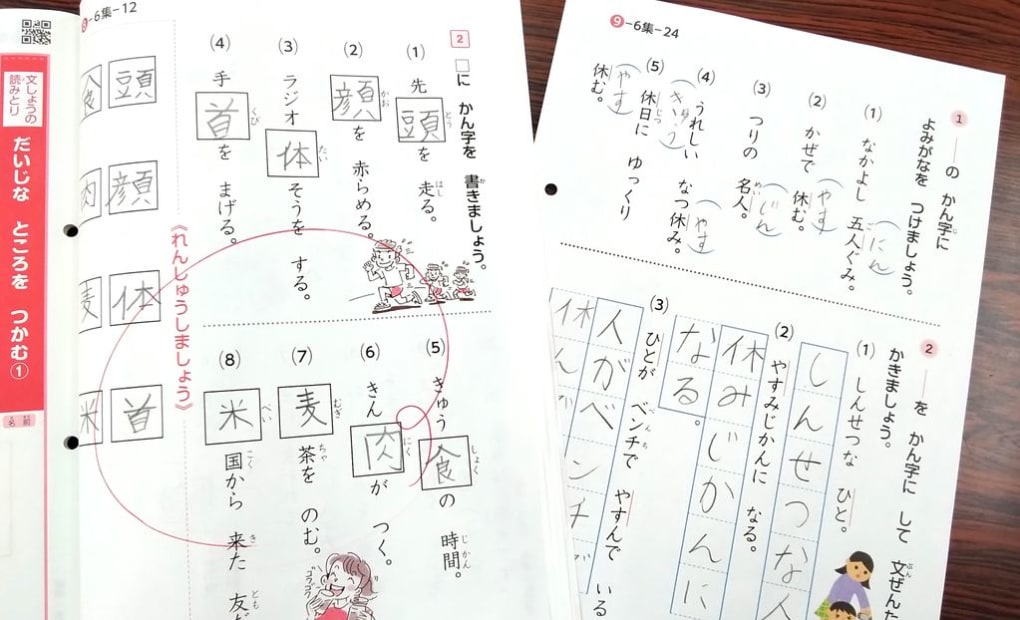 文しょうの
読みとり
だいじな ところを つかむ①
名前
-6集-12
2
□に かん字を 書きましょう。
(1) 先頭を 走る。
(2) 顔を 赤らめる。
(3) ラジオ体そうを する。
(4) 手首を まげる。
(5) きゅう食の 時間。
(6) きん肉が つく。
(7) 麦茶を のむ。
(8) 米国から 来た 友
とう
はし
かお
たい
くび
しょく
じかん
にく
むぎ
ちゃ
べい
こく
き
とも
ゴクゴク
《れんしゅうしましょう》
頭
顔
体
首
食
肉
麦
米
9-6集-24
1 ──の かん字に
よみがなを つけましょう。
(1) なかよし 五人ぐみ。
(にん)
(2) かぜで 休む。
(やす)
(3) つりの 名人。
(じん)
(4) うれしい なつ休み。
(やす)
(5) 休日に ゆっくり
(きゅう)
休む。
(やす)
2 ──を かん字に して 文ぜんた
かきましょう。
(1) しんせつな ひと。
しんせつな人
(2) やすみじかんに なる。
休みじかんに
なる。
(3) ひとが ベンチで やすんで いる
人がベンチ
休ん